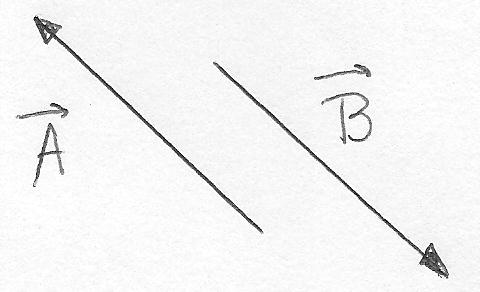 A⃗
B⃗